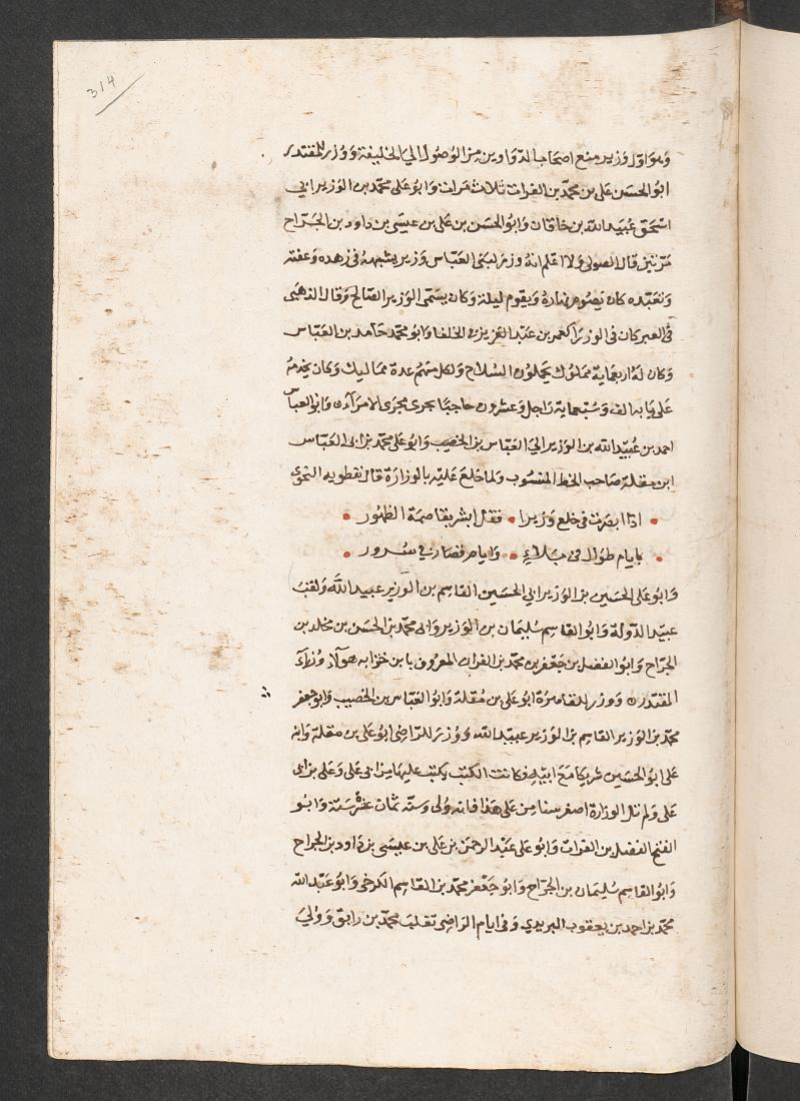 314
وهو اول وزير منع اصحاب الدواوين من الوصول الي الخليفة ووزر للمقتدر
ابو الحسن على بن محمد بن الفرات ثلاث مرات وابو على محمد بن الوزير ابي
اسحق عبيد الله بن خاقان وابو الحسن بن على بن عيسى بن داود بن الجراح
مرتين قال الصولى ولا اعلم انه وزر لبنى العباس وزير يشبهه فى زهده وعفته
وتعبده كان يصوم نهاره ويقوم ليله وكان يسمى الوزير الصالح وقال الذهبى
فى العبر كان فى الوزرآ كعمر بن عبد العزيز فى الخلفا وابو محمد حامد بن العباس
وكان له اربعماية مملوك يحملون السلاح ولكل منهم عدة مماليك وكان يخدمه
على بابه الف وسبعماية راجل وعشرون حاجبا يجرى مجرى الامرآء وابو العباس
احمد بن عبيد الله بن الوزير ابي العباس بن الخصيب وابو على محمد بن ابى العباس
ابن مقلة صاحب الخط المنسوب ولما خلع عليه بالوزارة قال نفطويه النحوى
اذا ابصرت فى خلع وزيرا فقل ابشر بقاصمة الظهور
بايام طوال فى بلاءٍ وايام قصار فى سرور
وابو على الحسين بن الوزير ابي الحسين القاسم بن الوزير عبيد الله ولقب
عبيد الدولة وابو القاسم سليمان بن الوزير وابى محمد بن الحسن بن مخلد بن
الجراح وابو الفضل بن جعفر بن محمد بن الفرات المعروف بابن خنزابه هولاء وزرآء
المقتدر ووزر للقاهر ابو على بن مقلة وابو العباس بن الخصيب وابو جعفر
محمد بن الوزير القاسم بن الوزير عبيد الله ووزر للراضى ابو على بن مقلة وابنه
على ابو الحسين شريكا مع ابيه فكانت الكتب يكتب عليها من ابى على وعلى بن ابى
على ولم نل الوزارة اصغر سنا من على هذا فانه ولى وسنه ثمان عشرة سنة وابو
الفتح الفضل بن الفرات وابو على عبد الرحمن بن على بن عيسى بن داود بن الجراح
وابو القاسم سليمان بن الجراح وابو جعفر محمد بن القاسم الكرخى وابو عبد الله
محمد بن احمد بن يعقوب البريدي وفى ايام الراضى تغلب محمد بن رايق وولي